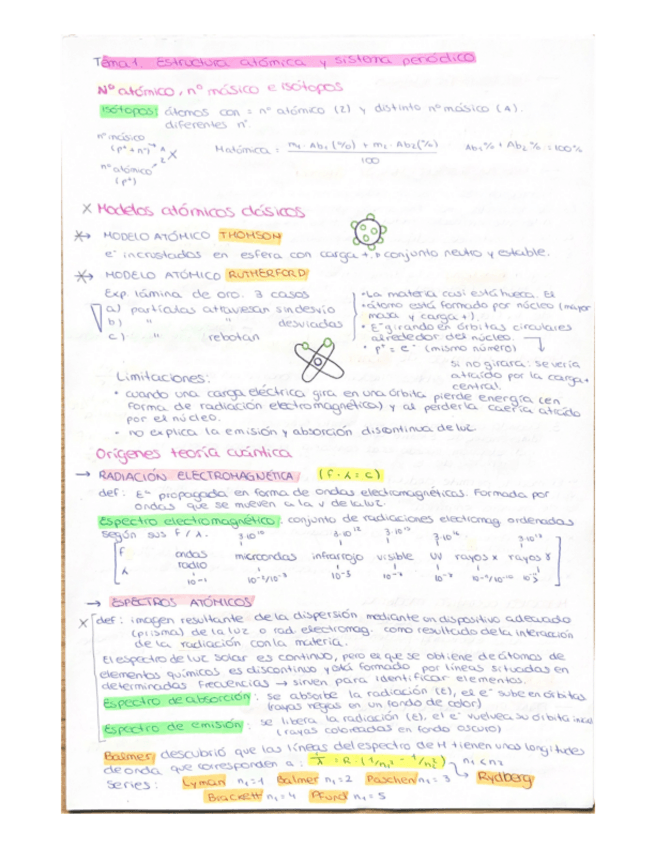 Tema 1. Estructura atómica y sistema periódico
Nº atómico, nº másico e isótopos
Isótopos: átomos con = nº atómico (Z) y distinto nº másico (A).
diferentes nº
nº másico
(p⁺ + n) → A
Z X
nº atómico
(p⁺)
Matómica = m₁ · Ab₁ (%) + m₂ · Ab₂ (%) / 100
Ab₁% + Ab₂% = 100%
Modelos atómicos clásicos
→ MODELO ATÓMICO THOMSON
e⁻ incrustados en esfera con carga +. → conjunto neutro y estable.
→ MODELO ATÓMICO RUTHERFORD
Exp. lámina de oro. 3 casos
a) partículas atraviesan sin desvío
b) " " desviadas
c) " rebotan
• La materia casi está hueca. El
• átomo está formado por núcleo (mayor
masa y carga +).
• E⁻ girando en órbitas circulares
alrededor del núcleo.
• p⁺ = e⁻ (mismo número)
si no girara: se vería
atraído por la carga +
central.
Limitaciones:
• cuando una carga eléctrica gira en una órbita pierde energía (en
forma de radiación electromagnética) y al perderla caería atraído
por el núcleo.
• no explica la emisión y absorción discontinua de luz.
Orígenes teoría cuántica
→ RADIACIÓN ELECTROMAGNÉTICA (f · λ = c)
def: Eª propagada en forma de ondas electromagnéticas. Formada por
ondas que se mueven a la v de la luz.
Espectro electromagnético: conjunto de radiaciones electromag. ordenadas
según sus f / λ.
f ondas radio microondas infrarrojo visible UV rayos x rayos γ
λ
→ ESPECTROS ATÓMICOS
def: imagen resultante de la dispersión mediante un dispositivo adecuado
(prisma) de la luz o rad. electromag. como resultado de la interacción
de la radiación con la materia.
El espectro de luz solar es continuo, pero el que se obtiene de átomos de
elementos químicos es discontinuo y está formado por líneas situadas en
determinadas frecuencias → sirven para identificar elementos.
Espectro de absorción: se absorbe la radiación (E), el e⁻ sube en órbitas
(rayas negras en un fondo de color)
Espectro de emisión: se libera la radiación (E), el e⁻ vuelve a su órbita
(rayas coloreadas en fondo oscuro)
Balmer: descubrió que las líneas del espectro de H tienen unas longitudes
de onda que corresponden a: 1/λ = R · (1/n₁² - 1/n₂²) n₁ < n₂
Rydberg
series: Lyman n₁ = 1 Balmer n₁ = 2 Paschen n₁ = 3
Brackett n₁ = 4 Pfund n₁ = 5